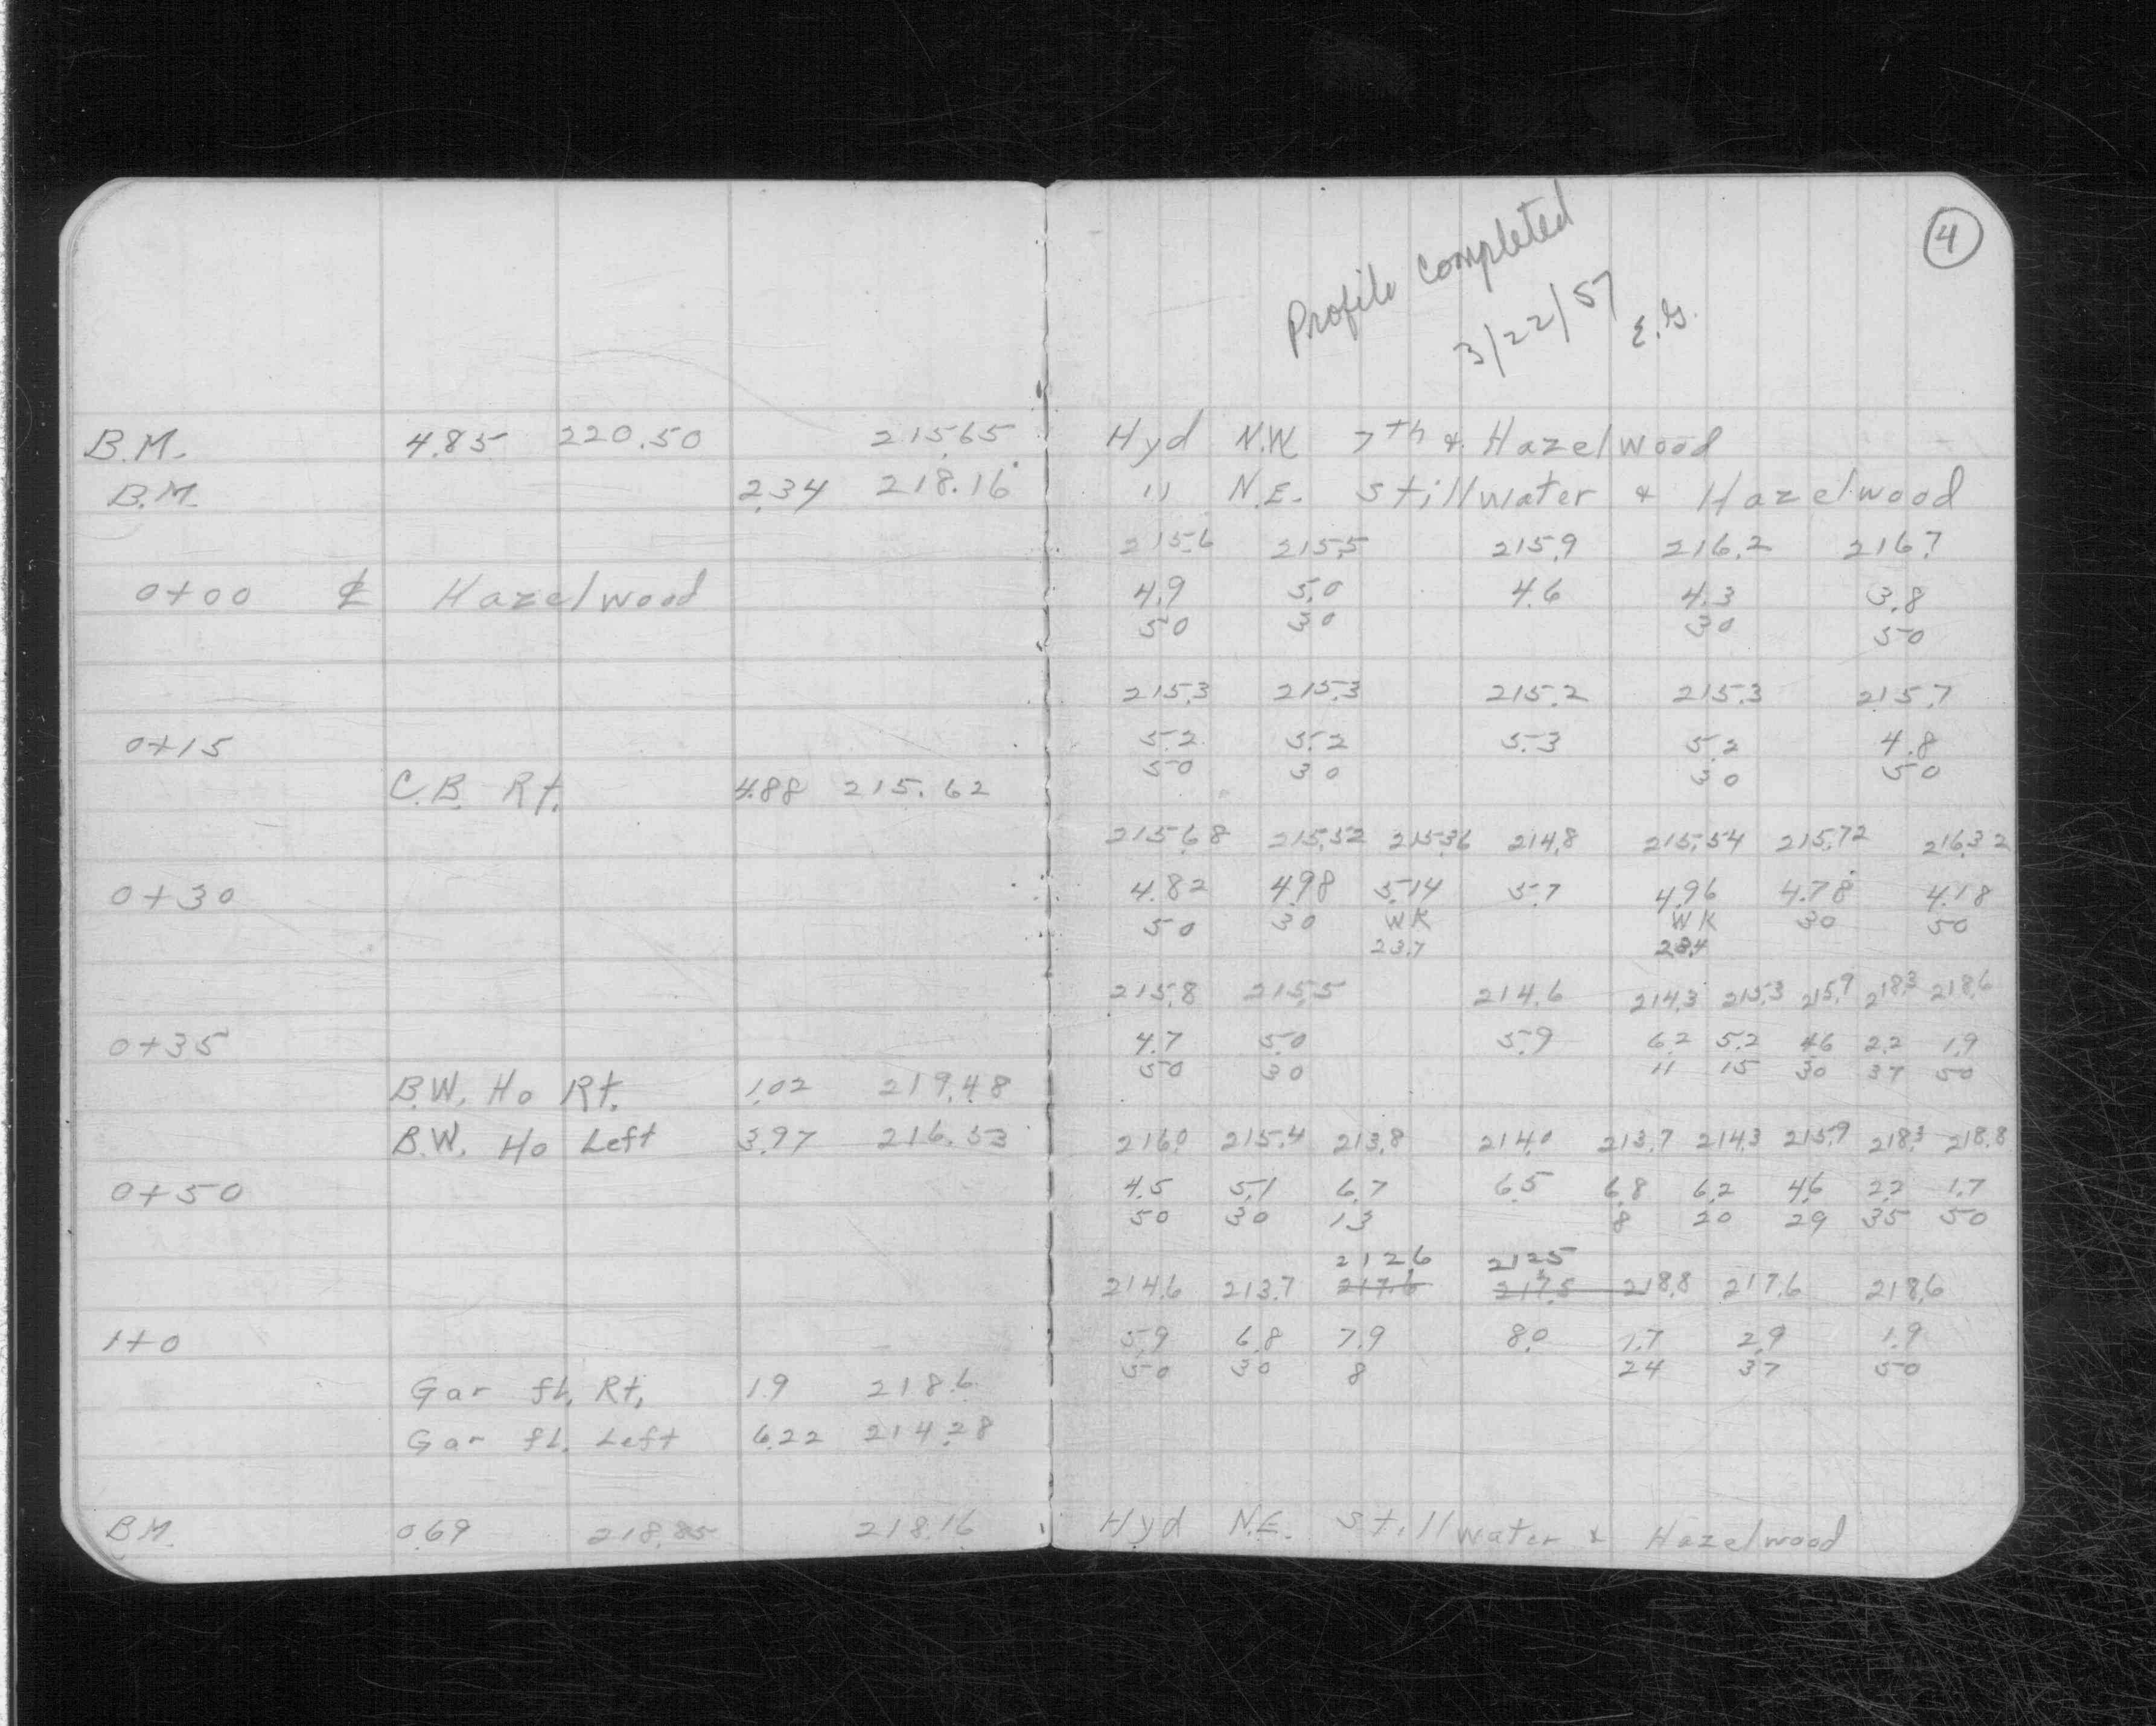 4
Profile completed
3/22/57 E.G.
B.M. 4.85 220.50 215.65 Hyd N.W. 7th & Hazelwood
B.M. 2.34 218.16 " N.E. Stillwater & Hazelwood
215.6 215.5 215.9 216.2 216.7
0+00 ℄ Hazelwood 4.9 5.0 4.6 4.3 3.8
50 30 30 50
215.3 215.3 215.2 215.3 215.7
0+15 5.2 5.2 5.3 5.2 4.8
50 30 30 50
C.B. Rt. 4.88 215.62
215.68 215.52 215.36 214.8 215.54 215.72 216.32
0+30 4.82 4.98 5.14 5.7 4.96 4.78 4.18
50 30 WK WK 30 50
23.7 23.4
215.8 215.5 214.6 214.3 215.3 215.9 218.3 218.6
0+35 4.7 5.0 5.9 6.2 5.2 4.6 2.2 1.9
50 30 11 15 30 37 50
B.W. Ho Rt. 1.02 219.48
B.W. Ho Left 3.97 216.53 216.0 215.4 213.8 214.0 213.7 214.3 215.9 218.3 218.8
0+50 4.5 5.1 6.7 6.5 6.8 6.2 4.6 2.2 1.7
50 30 13 8 20 29 35 50
212.6 212.5
214.6 213.7 217.6 217.5 218.8 217.6 218.6
1+0 5.9 6.8 7.9 8.0 1.7 2.9 1.9
50 30 8 24 37 50
Gar fl. Rt. 1.9 218.6
Gar fl. Left 6.22 214.28
B.M. 0.69 218.85 218.16 Hyd N.E. Stillwater & Hazelwood